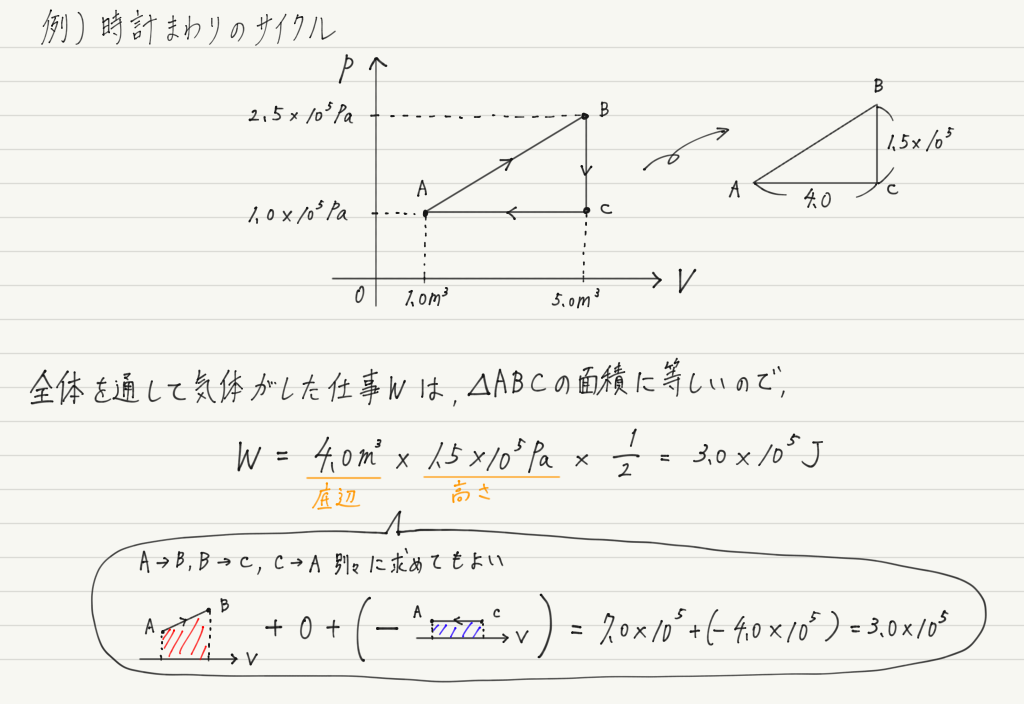 例) 時計まわりのサイクル
P
2.5×10⁵Pa
B
A
C
1.0×10⁵Pa
O
1.0m³
5.0m³
V
B
1.5×10⁵
A
4.0
C
全体を通して気体がした仕事Wは, △ABCの面積に等しいので,
W = 4.0m³ × 1.5×10⁵Pa × 1/2 = 3.0×10⁵J
底辺 高さ
A→B, B→C, C→A 別々に求めてもよい
A B V + 0 + (− A C V) = 7.0×10⁵+(−4.0×10⁵) = 3.0×10⁵